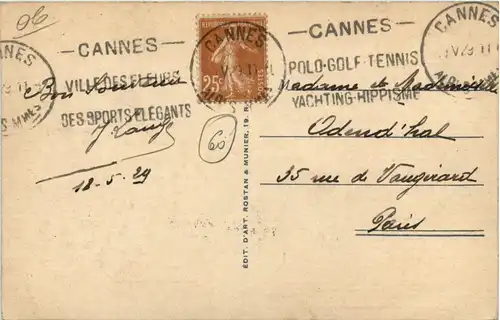 06
CANNES
CANNES
CANNES
CANNES
VILLE DES FLEURS
DES SPORTS ELEGANTS
25c
POSTES
POLO-GOLF-TENNIS
YACHTING-HIPPISME
Bon Souvenir
60
18-5-29
ÉDIT. D'ART. ROSTAN & MUNIER, 19, R.
Madame et Mademoiselle
Odend'hal
35 rue de Vaugirard
Paris